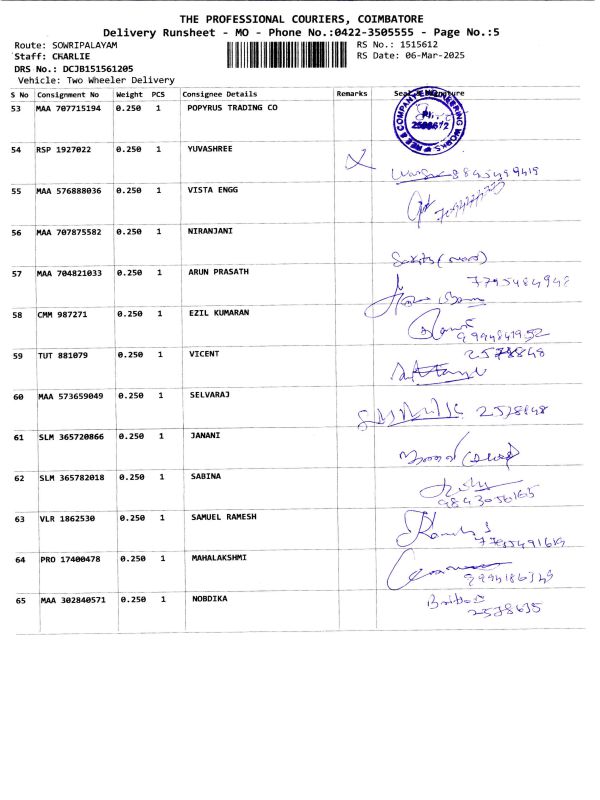 THE PROFESSIONAL COURIERS, COIMBATORE
Delivery Runsheet - MO - Phone No.:0422-3505555 - Page No.:5
Route: SOWRIPALAYAM RS No.: 1515612
Staff: CHARLIE RS Date: 06-Mar-2025
DRS No.: DCJB151561205
Vehicle: Two Wheeler Delivery
S No Consignment No Weight PCS Consignee Details Remarks Seal & Signature
53 MAA 707715194 0.250 1 POPYRUS TRADING CO
54 RSP 1927022 0.250 1 YUVASHREE
55 MAA 576888036 0.250 1 VISTA ENGG
56 MAA 707875582 0.250 1 NIRANJANI
57 MAA 704821033 0.250 1 ARUN PRASATH 7795484948
58 CMM 987271 0.250 1 EZIL KUMARAN 9994841952
59 TUT 881079 0.250 1 VICENT 2578848
60 MAA 573659049 0.250 1 SELVARAJ
61 SLM 365720866 0.250 1 JANANI
62 SLM 365782018 0.250 1 SABINA
63 VLR 1862530 0.250 1 SAMUEL RAMESH
64 PRO 17400478 0.250 1 MAHALAKSHMI
65 MAA 302840571 0.250 1 NOBDIKA 2578635